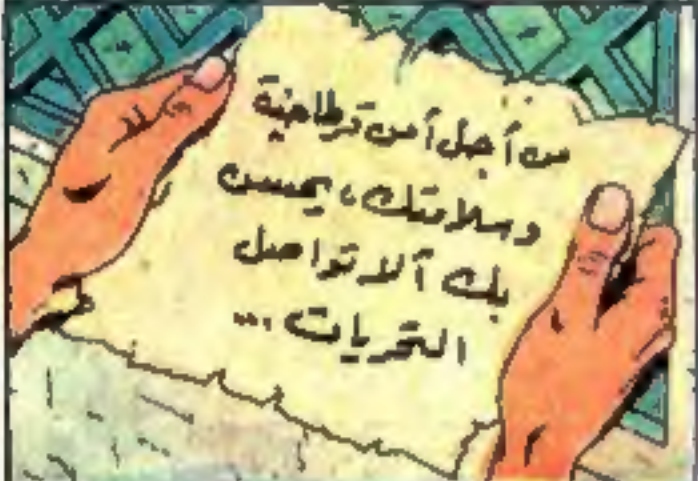 من أجل أمن قرطاجنة
وسلامتك، يحسن
بك ألا تواصل
التحريات ...